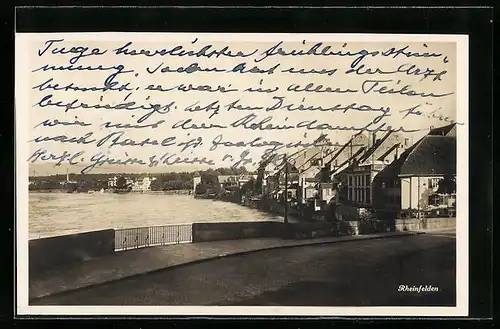 Tage herrlichster Frühlingsstim-
mung. Soeben hat uns der Arzt
besucht, er war in allen Teilen
befriedigt. Letzten Dienstag fuhren
wir mit der Rheindampfer
nach Basel
Herzl. Grüsse
Rheinfelden